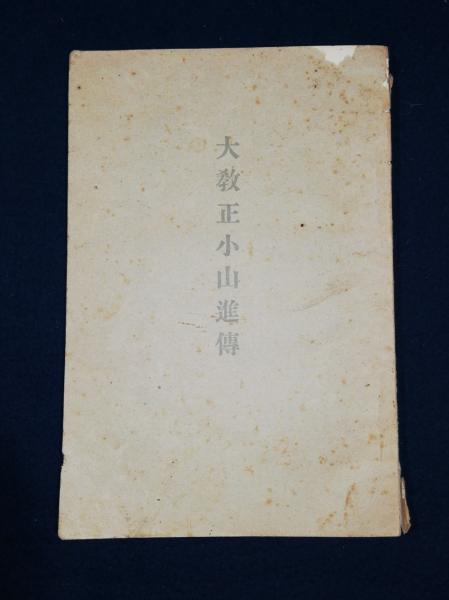 大教正小山進傳